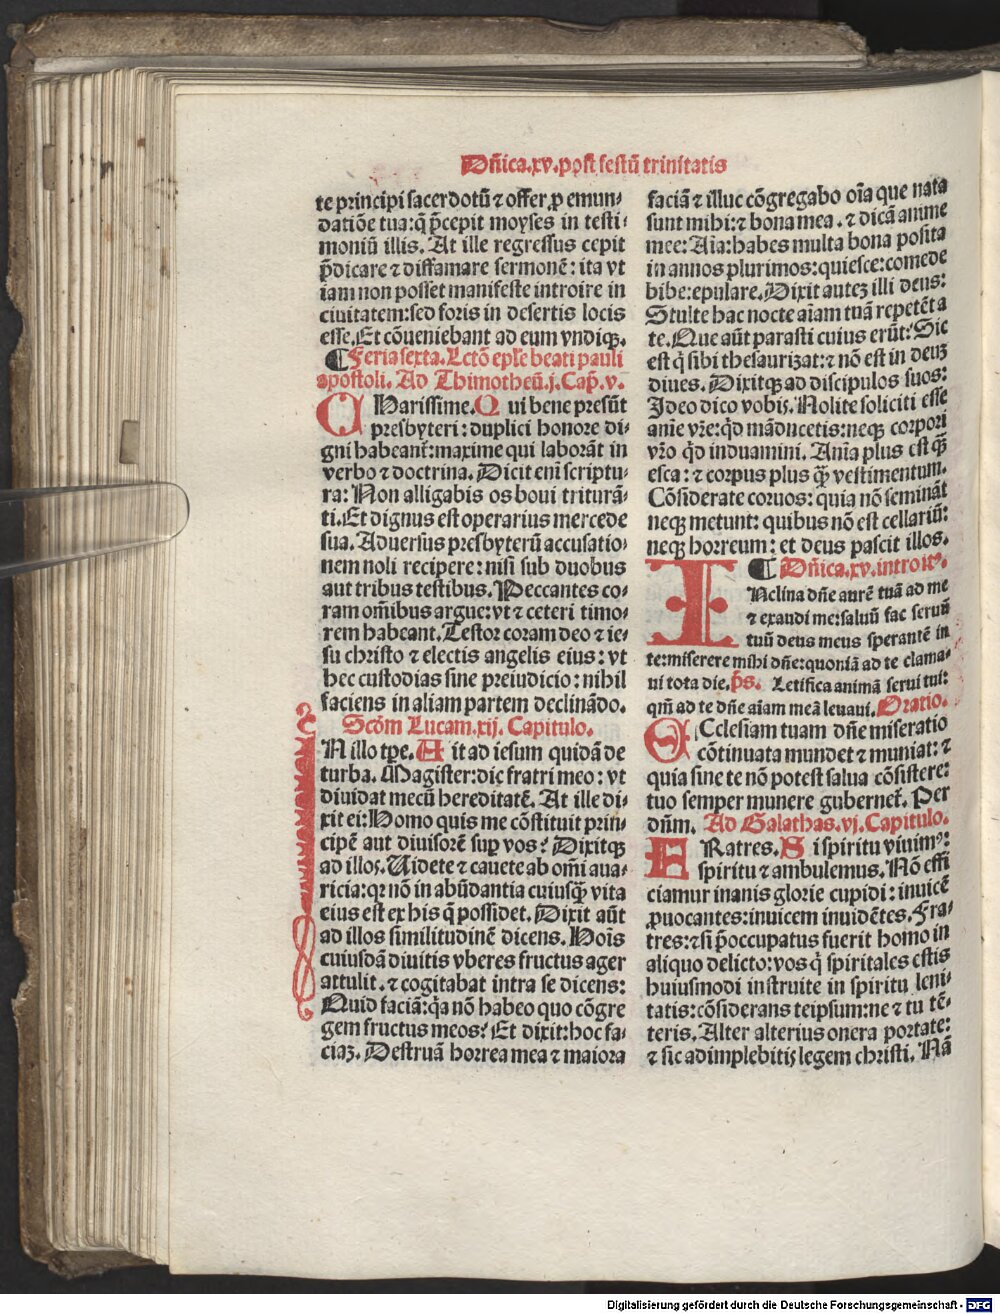 Dñica.xv.post festū trinitatis
te principi sacerdotū ⁊ offer ꝓ emun⸗
datiōe tua: q̄ p̄cepit moyses in testi⸗
moniū illis. At ille regressus cepit
p̄dicare ⁊ diffamare sermonē: ita vt
iam non posset manifeste introire in
ciuitatem: sed foris in desertis locis
esse. Et cōueniebant ad eum vndiqꝫ.
¶ Feria sexta. Lctō epl̄e beati pauli
apostoli. Ad Thimotheū.j. Cap̄. v.
CHarissime. Qui bene presūt
presbyteri: duplici honore di⸗
gni habeant̄: maxime qui laborāt in
verbo ⁊ doctrina. Dicit eni̅ scriptu⸗
ra: Non alligabis os boui triturā⸗
ti. Et dignus est operarius mercede
sua. Aduersus presbyterū accusatio⸗
nem noli recipere: nisi sub duobus
aut tribus testibus. Peccantes co⸗
ram om̄ibus argue: vt ⁊ ceteri timo⸗
rem habeant. Testor coram deo ⁊ ie⸗
su christo ⁊ electis angelis eius: vt
hec custodias sine preiudicio: nihil
faciens in aliam partem declinādo.
Scd̄m Lucam. xij. Capitulo.
IN illo tp̄e. Ait ad iesum quidā de
turba. Magister: dic fratri meo: vt
diuidat mecū hereditatē. At ille di⸗
xit ei: Homo quis me cōstituit prin⸗
cipē aut diuisorē sup̲ vos? Dixitqꝫ
ad illos. Uidete ⁊ cauete ab om̄i aua⸗
ricia: qꝛ nō in abūdantia cuiusqꝫ̄ vita
eius est ex his q̄ possidet. Dixit aūt
ad illos similitudinē dicens. Hoīs
cuiusdā diuitis vberes fructus ager
attulit. ⁊ cogitabat intra se dicens:
Quid faciā: qꝛ nō habeo quo cōgre
gem fructus meos? Et dixit: hoc fa⸗
ciaꝫ. Destruā horrea mea ⁊ maiora
faciā ⁊ illuc cōgregabo oīa que nata
sunt mihi: ⁊ bona mea. ⁊ dicā anime
mee: Aīa: habes multa bona posita
in annos plurimos: quiesce: comede
bibe: epulare. Dixit auteꝫ illi deus:
Stulte hac nocte aīam tuā repetēt a
te. Que aūt parasti cuius erūt: Sic
est q̇ sibi thesaurizat: ⁊ nō est in deuꝫ
diues. Dixitqꝫ ad discipulos suos:
Ideo dico vobis. Nolite soliciti esse
anīe vr̄e: qd̄ māducetis: neqꝫ corpori
vr̄o qd̄ induamini. Anīa plus est qꝫ̄
esca: ⁊ corpus plus qꝫ̄ vestimentum.
Cōsiderate coruos: quia nō semināt
neqꝫ metunt: quibus nō est cellariū:
neqꝫ horreum: et deus pascit illos.
¶ Dn̄ica.xv. introitꝰ.
INclina dn̄e aurē tuā ad me
⁊ exaudi me: saluū fac seruū
tuū deus meus sperantē in
te: miserere mihi dn̄e: quoniā ad te clama⸗
ui tota die. p̄s. Letifica animā serui tui:
qm̄ ad te dn̄e aīam meā leuaui. Oratio.
ECclesiam tuam dn̄e miseratio
cōtinuata mundet ⁊ muniat: ⁊
quia sine te nō potest salua cōsistere:
tuo semper munere gubernet̄. Per
dn̄m. Ad Galathas. vj. Capitulo.
FRatres. Si spiritu viuimꝰ:
spiritu ⁊ ambulemus. Nō effi
ciamur inanis glorie cupidi: inuicē
ꝓuocantes: inuicem inuidētes. Fra⸗
tres: ⁊ si p̄occupatus fuerit homo in
aliquo delicto: vos q̇ spiritales estis
huiusmodi instruite in spiritu leni⸗
tatis: cōsiderans teipsum: ne ⁊ tu tē⸗
teris. Alter alterius onera portate:
⁊ sic adimplebitis legem christi. Nā
Digitalisierung gefördert durch die Deutsche Forschungsgemeinschaft - DFG